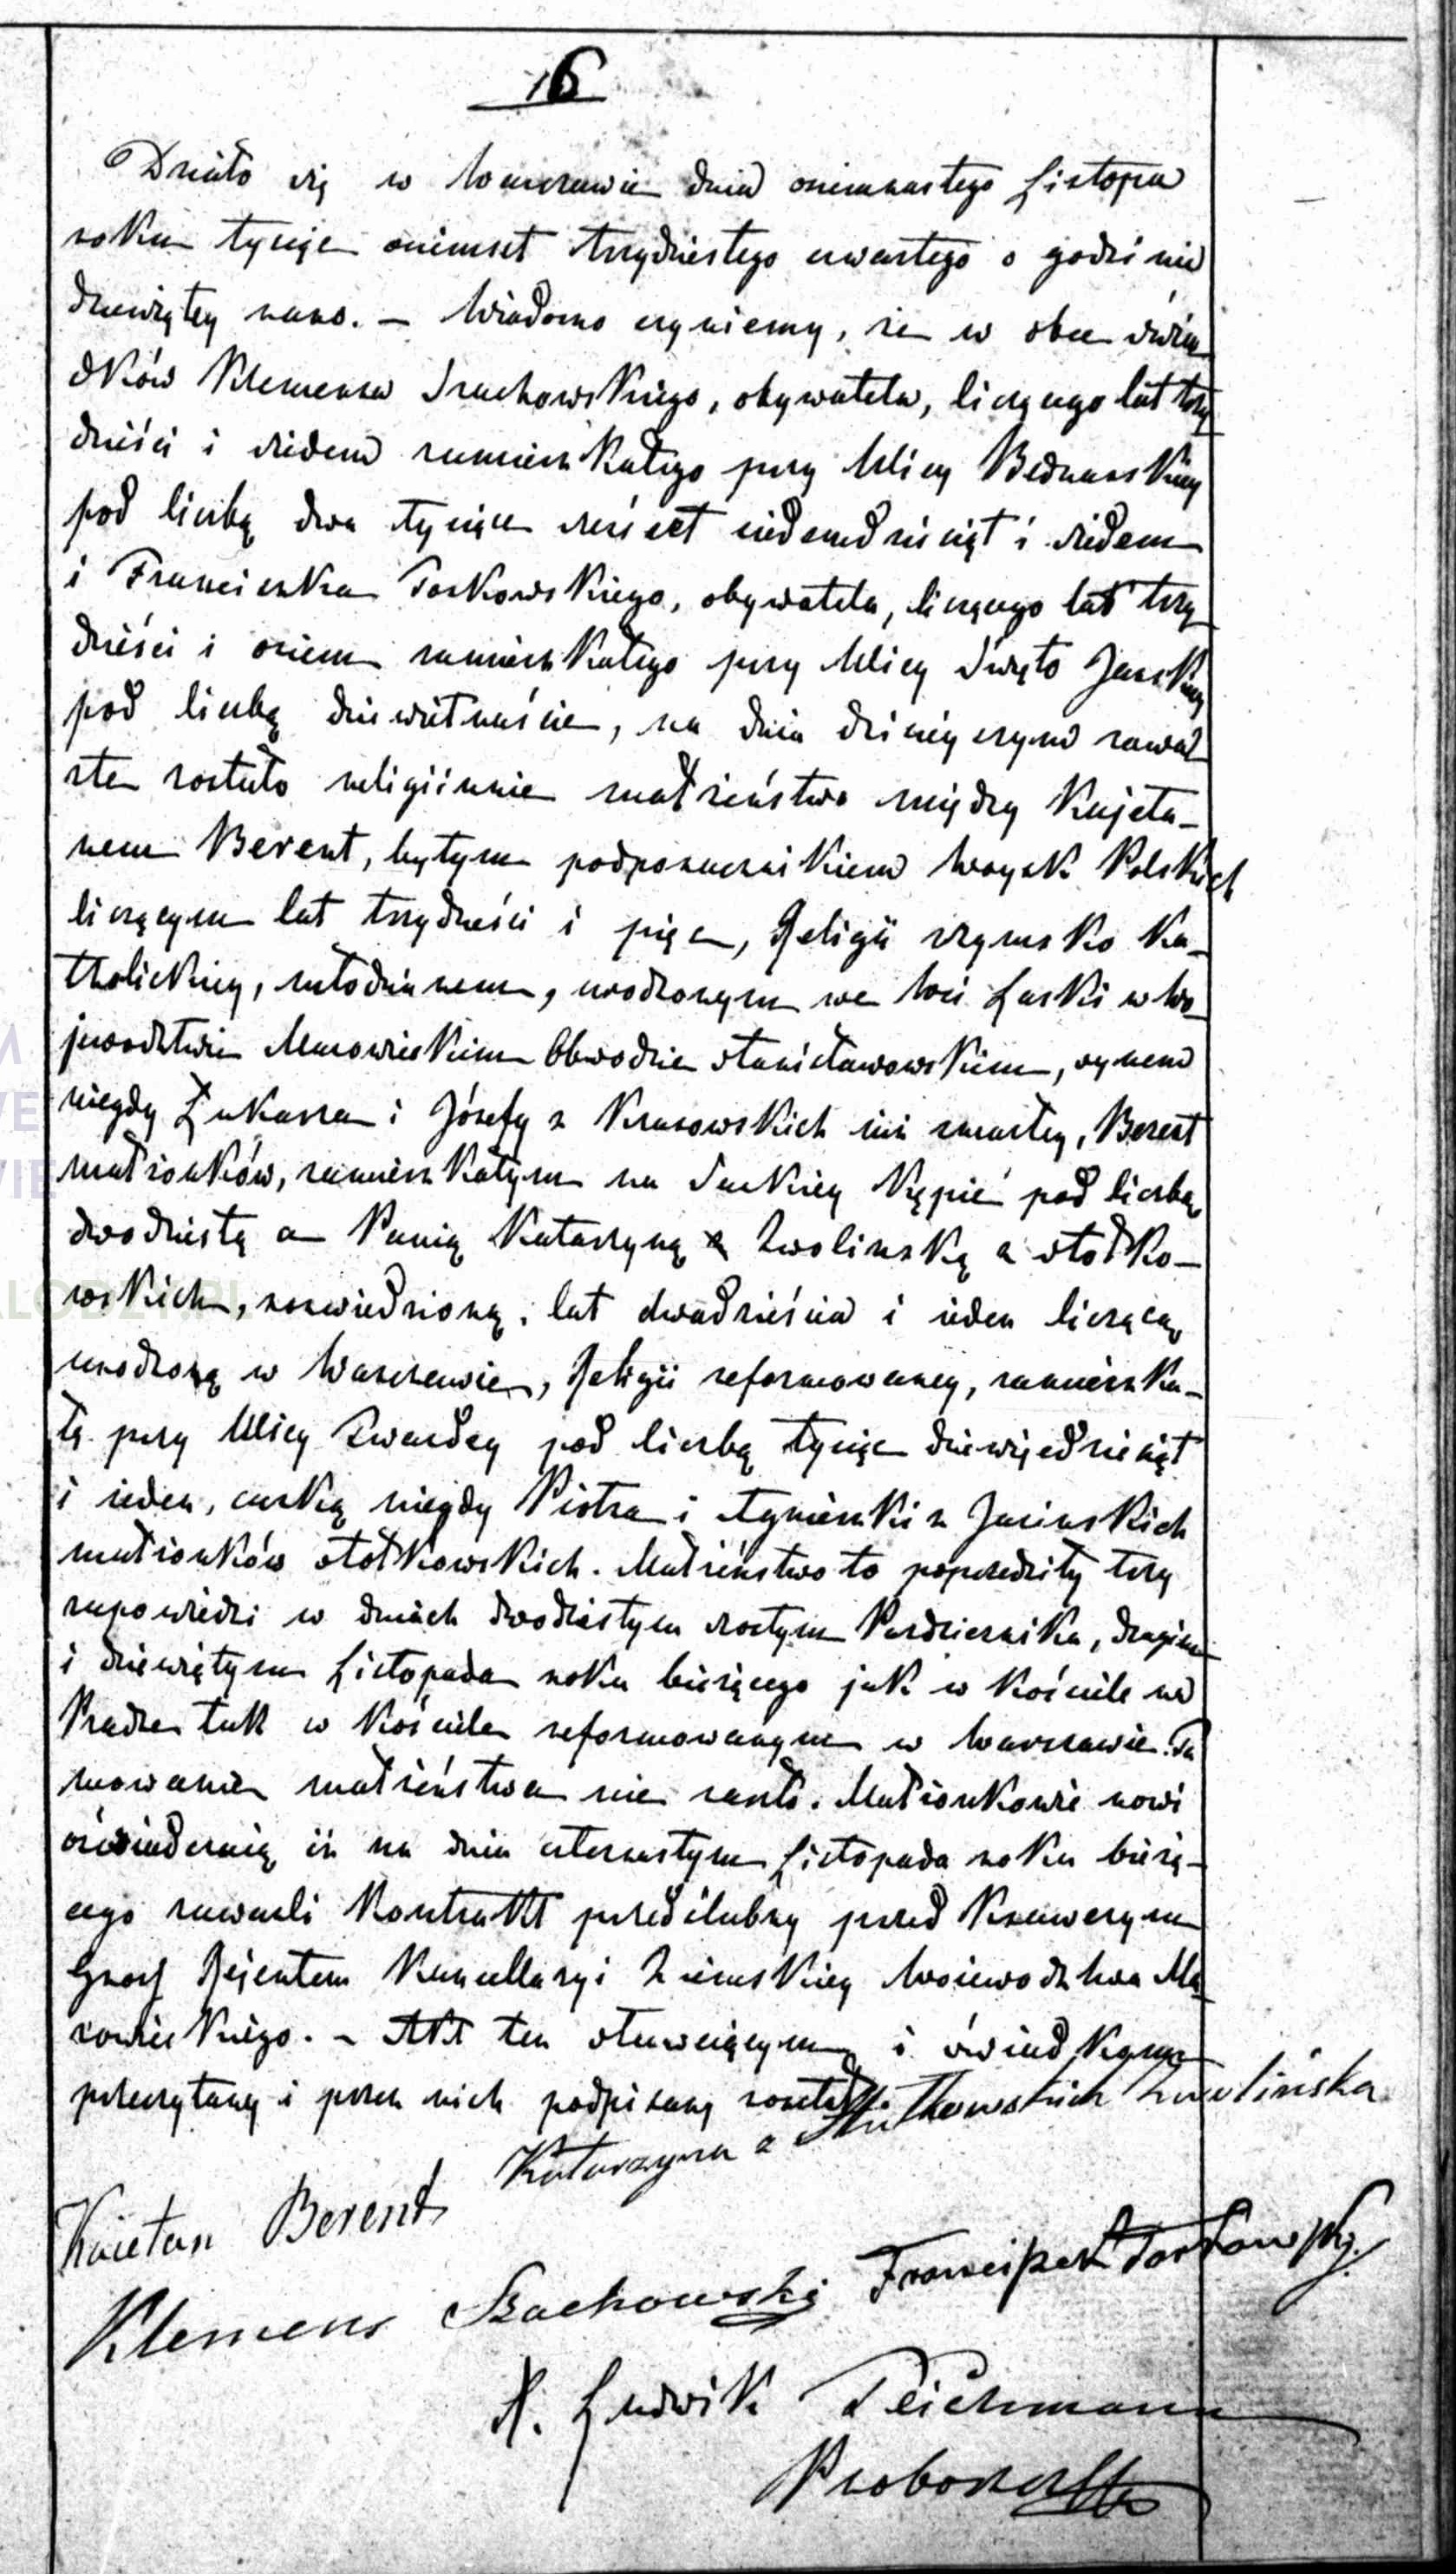 16
Działo się w Warszawie dnia osiemnastego Listopa
roku tysiąc ośimset trzydziestego czwartego o godzinie
dziewiątey rano. – Wiadomo czyniemy, że w obec świa
dków Klemensa Szachowskiego, obywatela, liczącego lat trzy
dzieści i siedem zamieszkałego przy Ulicy Bednarskiey
pod liczbą dwa tysiące sześćset siedemdziesiąt i siedem
i Franciszka Torkowskiego, obywatela, liczącego lat trzy
dzieści i osiem zamieszkałego przy Ulicy Święto Jańskiey
pod liczbą dziewietnaście, na dniu dzisieyszym zawar
te zostało religiinie małżeństwo między Kajeta-
nem Berent, byłym podporucznikiem Woysk Polskich
liczącym lat trzydzieści i pięc, Religii rzymsko Ka-
tholickiey, młodzianem, urodzonym we Wsi Laski w Wo-
jewodztwie Mazowieckiem Obwodzie Stanisławowskiem, synem
niegdy Łukasza i Józefy z Krasowskich już zmarłey, Berent
małżonków, zamieszkałym na Saskiey Kępie pod liczbą
dwodziestą a Panią Katarzyną Zwolinską z Stołko-
wskich, rozwiedzioną, lat dwadzieścia i ieden liczącą
urodzoną w Warszawie, Religii reformowaney, zamieszka-
łą przy Ulicy Twardey pod liczbą tysiąc dziewięedziesiąt
i ieden, curką niegdy Piotra i Agnieszki z Jasinskich
małżonków Stołkowskich. Małżeństwo to poprzedziły trzy
zapowiedzi w dniach dwodziestym szostym Pazdziernika, drugim
i dziewiętym Listopada roku bieżącego jak w Kościele na
Pradze tak w Kościele reformowanym w Warszawie. Ta
mowanie małżeństwa nie zaszło. Małżonkowie nowi
oświadczaią iż na dniu czternastym Listopada roku bieżą-
cego zawarli Kontrakt przedślubny przed Xawerym
Rejentem Kancellaryi Ziemskiey Woiewodztwa Ma
zowieckiego. – Akt ten stawaiącym i świadkom
przeczytany i przez nich podpisany został.
Katarzyna z Stołkowskich Zwolińska
Kaietan Berent
Klemens Szachowski Franciszek Torkowski
X. Ludwik Teichmann
Proboszcz